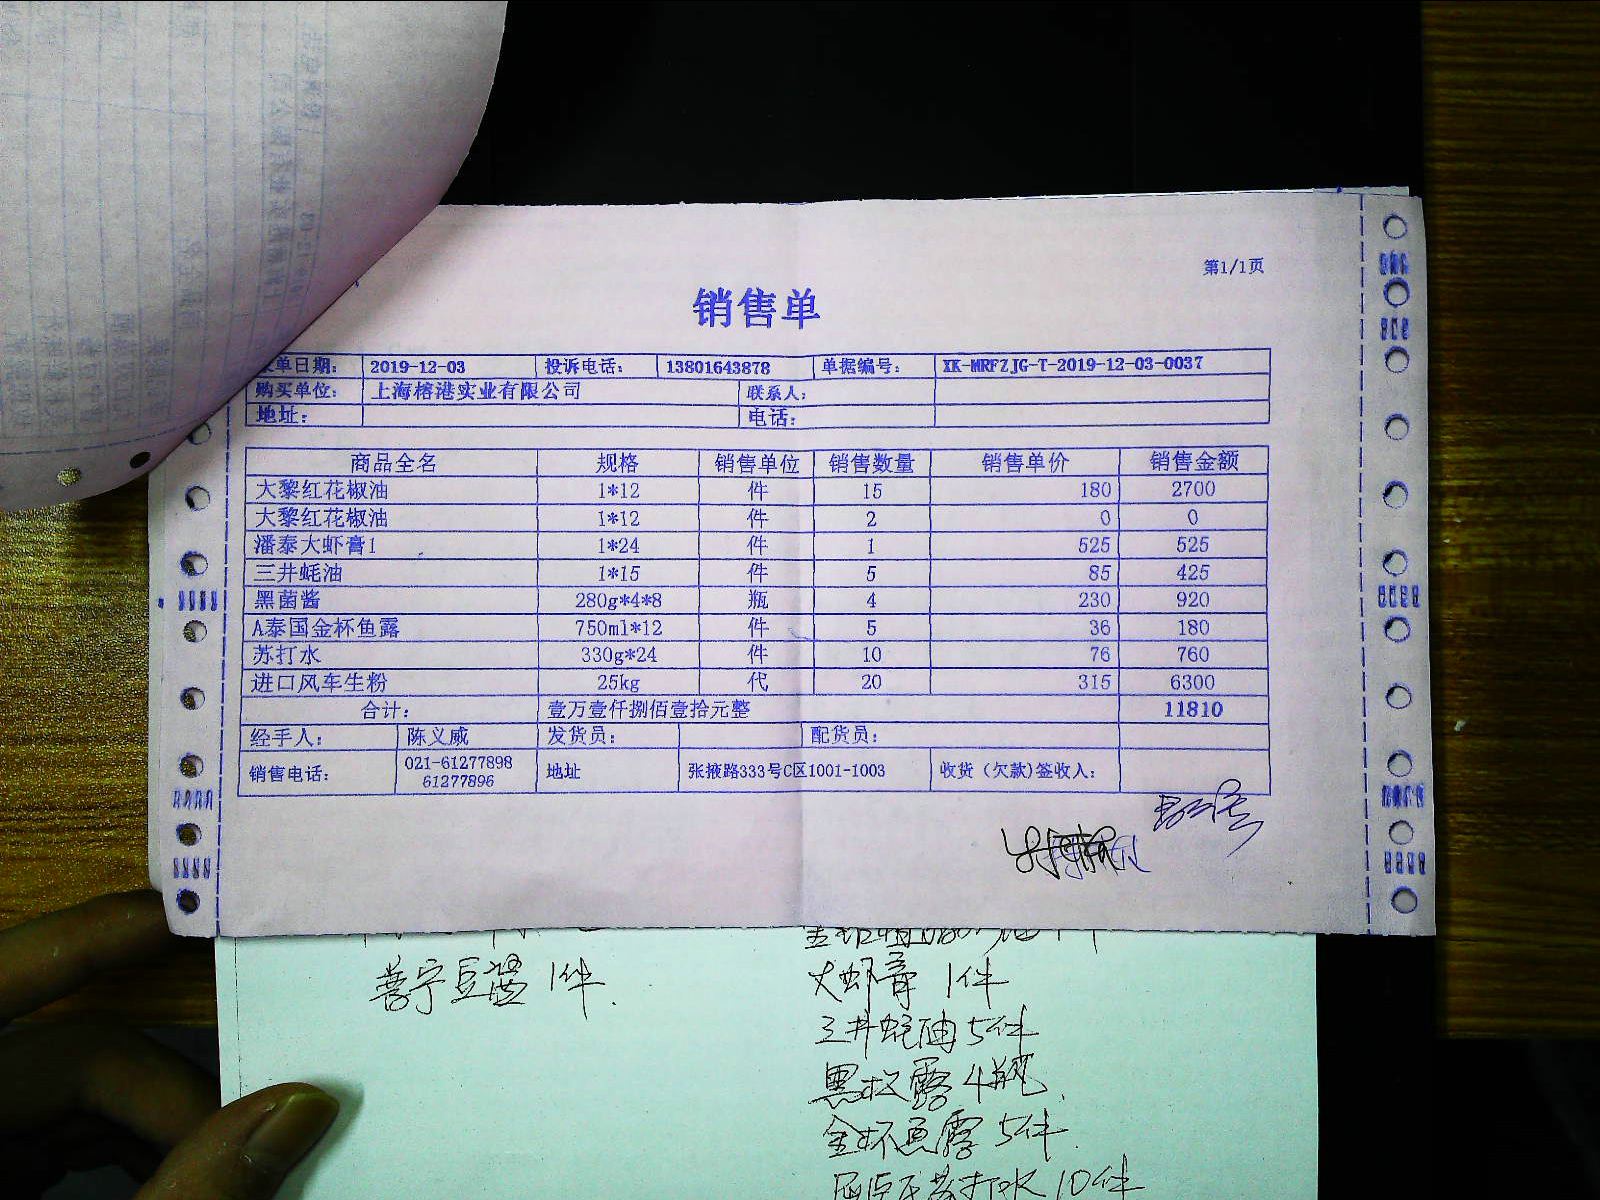 第1/1页
销售单
单日期: 2019-12-03 投诉电话: 13801643878 单据编号: XK-MRFZJG-T-2019-12-03-0037
购买单位: 上海榕港实业有限公司 联系人:
地址: 电话:
商品全名 规格 销售单位 销售数量 销售单价 销售金额
大黎红花椒油 1*12 件 15 180 2700
大黎红花椒油 1*12 件 2 0 0
潘泰大虾膏1 1*24 件 1 525 525
三井蚝油 1*15 件 5 85 425
黑菌酱 280g*4*8 瓶 4 230 920
A泰国金杯鱼露 750ml*12 件 5 36 180
苏打水 330g*24 件 10 76 760
进口风车生粉 25kg 代 20 315 6300
合计: 壹万壹仟捌佰壹拾元整 11810
经手人: 陈义威 发货员: 配货员:
销售电话: 021-61277898 61277896 地址 张掖路333号C区1001-1003 收货（欠款)签收人:
普宁豆酱 1件.
大虾膏 1件
三井蚝油 5件
黑松露 4瓶.
金杯鱼露 5件.
苏打水 10件